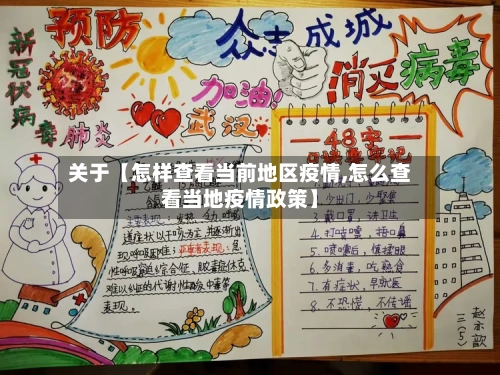 新冠状病毒肺炎
预防
众志成城
消灭病毒
加油!
武汉
48字
关于【怎样查看当前地区疫情,怎么查
看当地疫情政策】
主要表现:发热、乏力、呼吸
道症状以干咳为主,并逐渐出
现呼吸困难;
难以纠正的代谢性酸
表现。
少出门,少聚集
3.戴口罩,讲卫生
4.打喷嚏,捂口鼻
5.喷嚏后,慎揉眼
6.多消毒,吃熟食
7.有症状,早就医
8.不恐慌,不传谣
三(5)